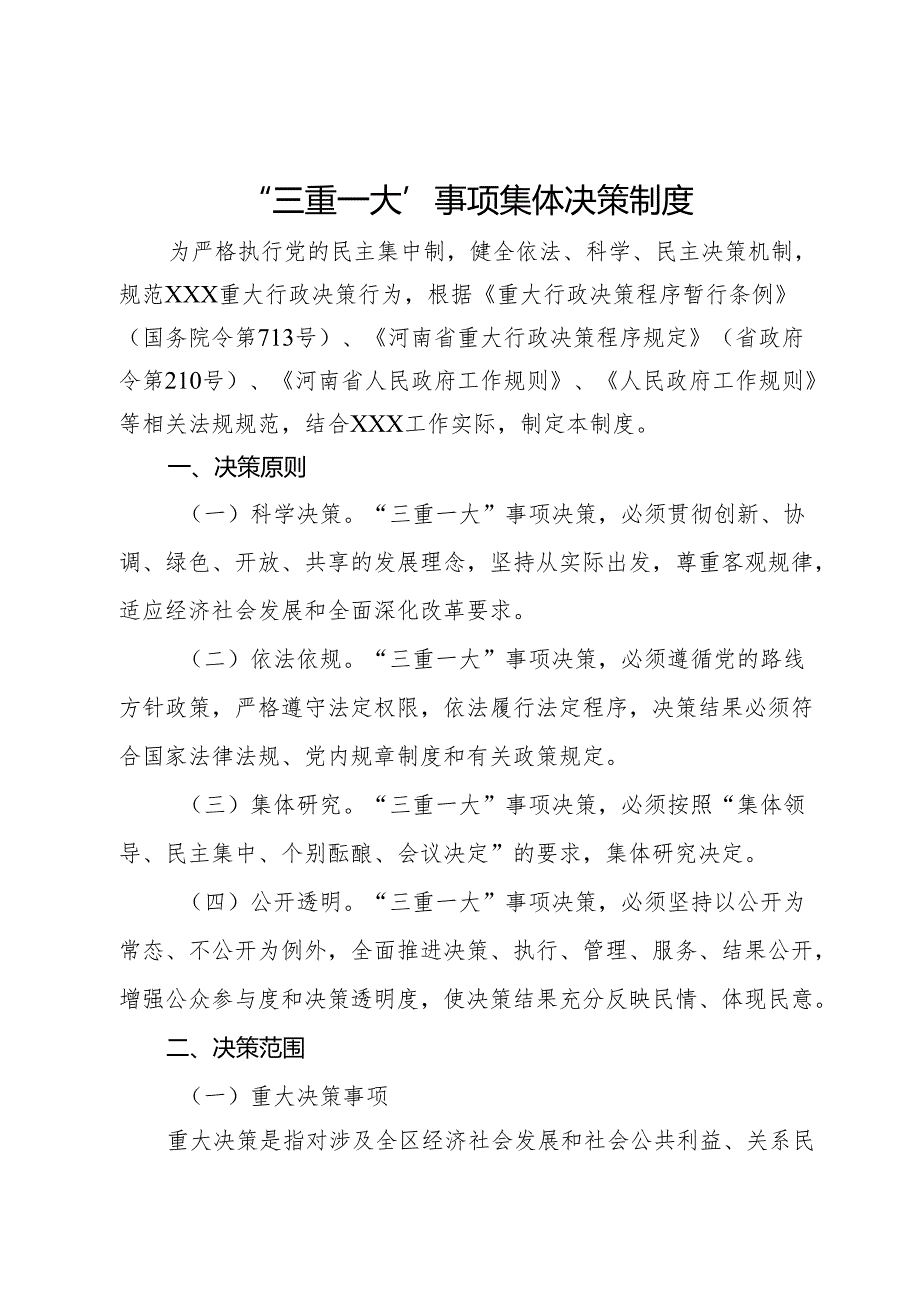 “三重一大’事项集体决策制度
为严格执行党的民主集中制，健全依法、科学、民主决策机制，
规范XXX重大行政决策行为，根据《重大行政决策程序暂行条例》
（国务院令第713号）、《河南省重大行政决策程序规定》（省政府
令第210号）、《河南省人民政府工作规则》、《人民政府工作规则》
等相关法规规范，结合XXX工作实际，制定本制度。
一、决策原则
（一）科学决策。“三重一大”事项决策，必须贯彻创新、协
调、绿色、开放、共享的发展理念，坚持从实际出发，尊重客观规律，
适应经济社会发展和全面深化改革要求。
（二）依法依规。“三重一大”事项决策，必须遵循党的路线
方针政策，严格遵守法定权限，依法履行法定程序，决策结果必须符
合国家法律法规、党内规章制度和有关政策规定。
（三）集体研究。“三重一大”事项决策，必须按照“集体领
导、民主集中、个别酝酿、会议决定”的要求，集体研究决定。
（四）公开透明。“三重一大”事项决策，必须坚持以公开为
常态、不公开为例外，全面推进决策、执行、管理、服务、结果公开，
增强公众参与度和决策透明度，使决策结果充分反映民情、体现民意。
二、决策范围
（一）重大决策事项
重大决策是指对涉及全区经济社会发展和社会公共利益、关系民